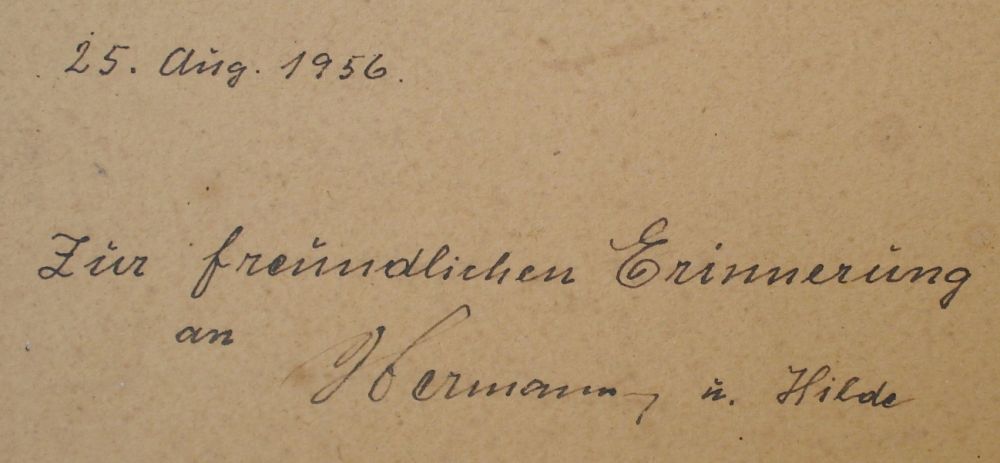 25. Aug. 1956.
Zur freundlichen Erinnerung
an
Hermann u. Hilde